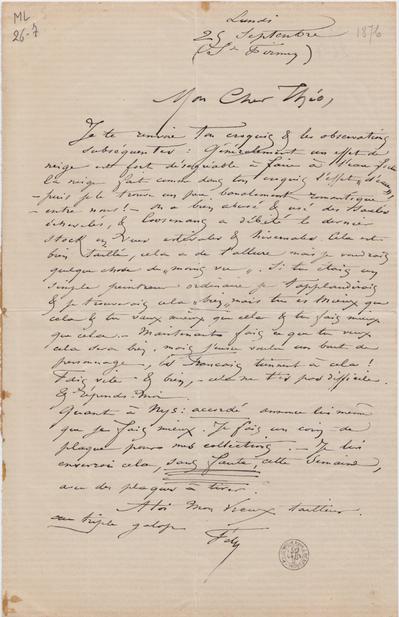 ML
26-7
1876
Lundi
25 Septembre
(St Firmin)
Mon Cher Théo,
Je te renvoie ton croquis & les observations
subséquentes : Généralement un effet de
neige est fort désagréable à faire à l'eau forte
la neige fait comme dans ton croquis l'effet
- puis je le trouve un peu banalement romantique,
- entre nous ! - On a bien abusé & usé des Saules
& Corneng a débité le dernier
stock en vues estivales & hivernales. Cela est
bien taillé, cela a de l'allure mais je voudrais
quelque chose de "moins vu". Si tu étais un
simple peintre ordinaire je t'applaudirais
& je trouverais cela "bien" mais tu es mieux que
cela & tu vaux mieux que cela & tu fais mieux
que cela. - Maintenant fais ce que tu veux
cela sera bien, mais j'eusse voulu un bout de
personnage, les Français tiennent à cela !
Fais vite & bien, - cela ne t'est pas difficile.
Et Réponds-Moi
Quant à Nys : accordé annonce lui même
que je fais mieux. Je fais un coin de
plaque pour ses collections. - Je lui
enverrai cela, sans faute, cette Semaine,
avec des plaques à
A toi Mon Vieux
au triple galop
Fély